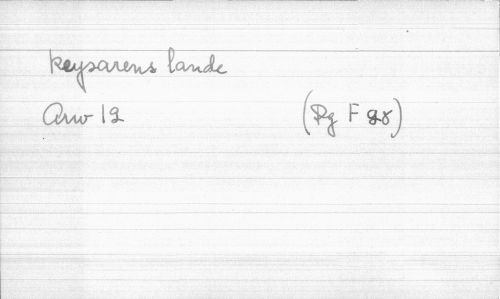 keysarens lande
Arw 12 (Rg F 28)